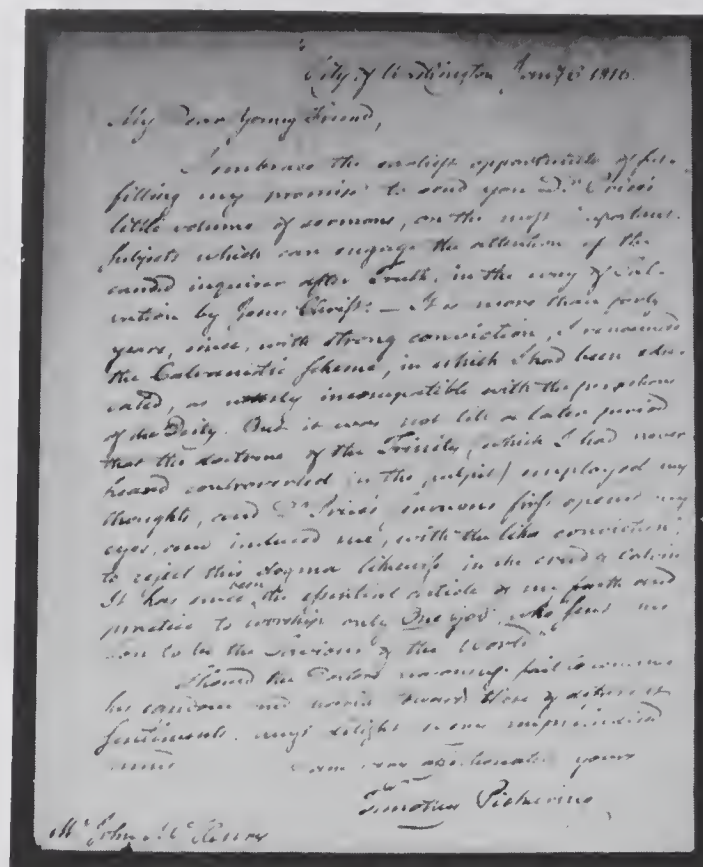 City of Washington Jany 1816.
My Dear Young Friend,
I embrace the earliest opportunity of ful-
filling my promise to send you Dr. Price's
little volume of sermons, on the most important
subjects which can engage the attention of the
candid inquirer after Truth, in the way of Sal-
vation by Jesus Christ. — It is more than forty
years, since, with strong conviction, I renounced
the Calvanistic Scheme, in which I had been edu-
cated, as utterly incompatible with the perfections
of the Deity. But it was not till a later period
that the doctrine of the Trinity, (which I had never
heard controverted in the pulpit) employed my
thoughts, and Dr. Price's sermons first opened my
eyes, and induced me, with the like conviction,
to reject this dogma likewise in the creed of Calvin
It has since been the essential article of my faith and
practice to worship only One God, who sent his
son to be the Saviour of the World"
Should the Doctor's reasonings fail to convince
his candour and toward those of different
sentiments, must delight every unprejudiced
mind I am very affectionately yours
Timothy Pickering
Mr. John Mc